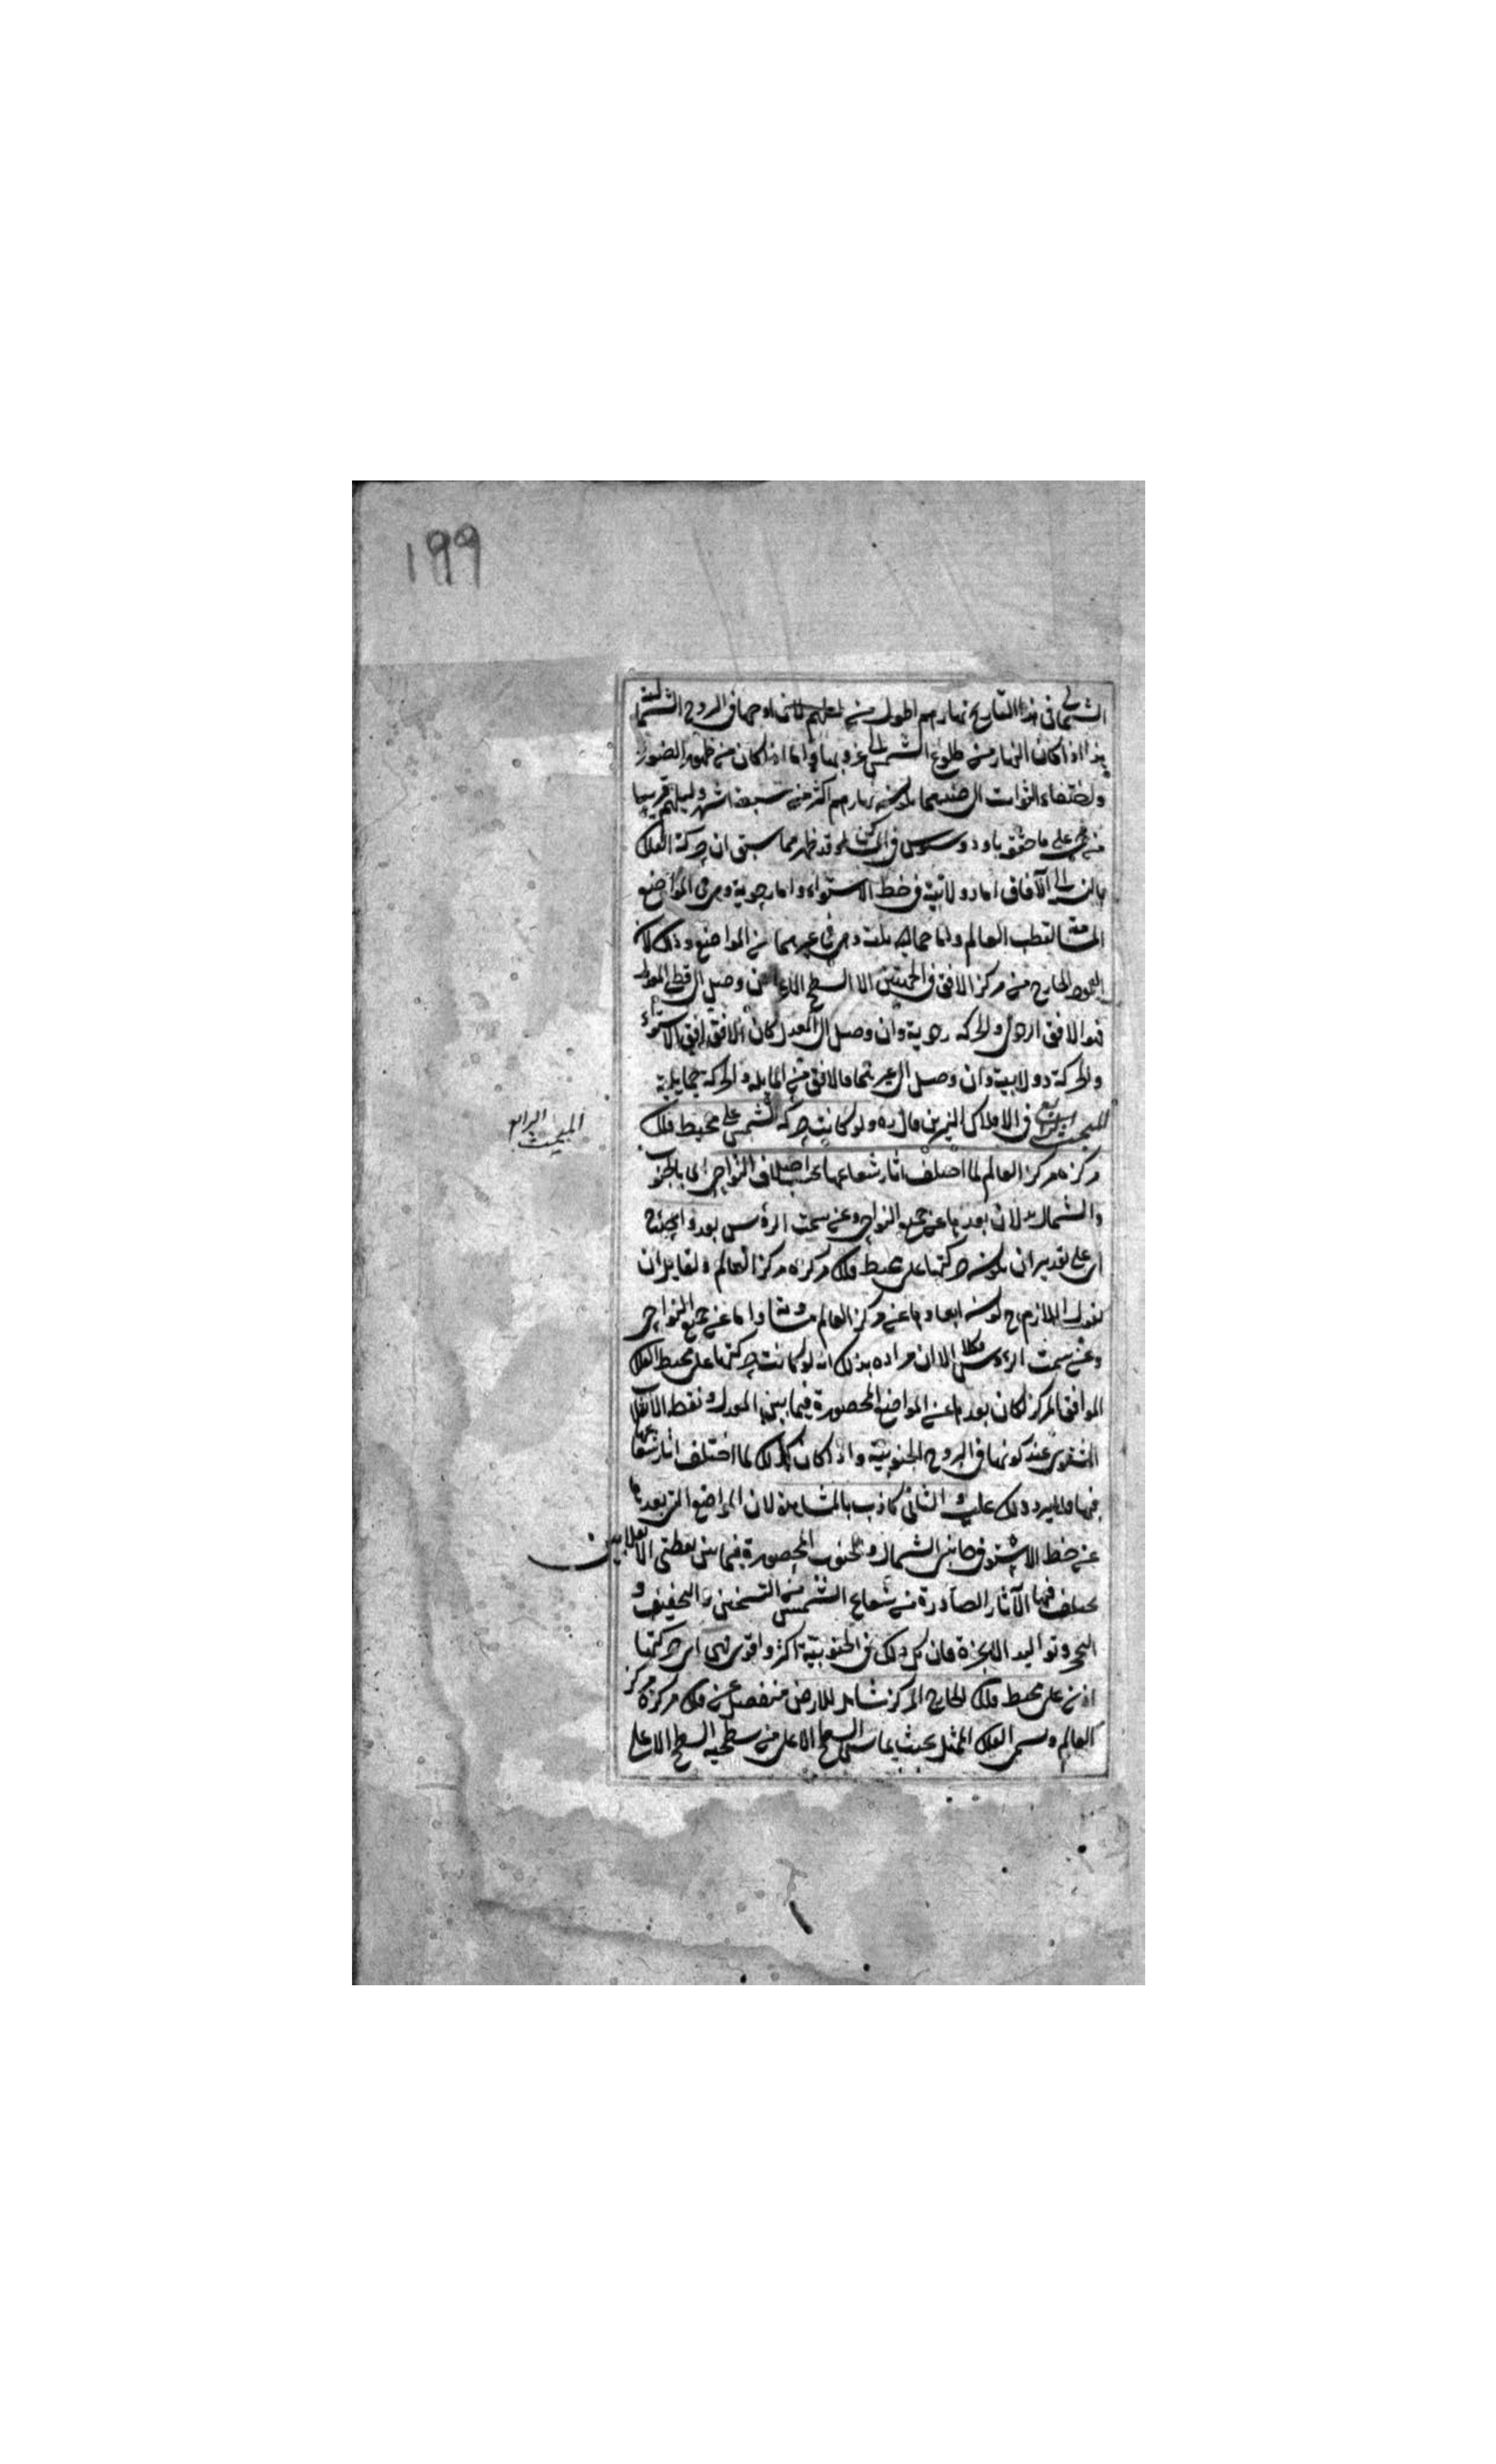 ١٩٩
الشمالى فى هذا التاريخ نهارهم اطول من ليلهم لان اوجها فى البروج الشمالية
هذا اذا كان النهار من طلوع الشمس الى غروبها واما اذا كان من ظهور الضوء
واختفاء الثوابت الى ضدهما يكون نهارهم اكثر من سبعة اشهر وليلهم قريبا
من على ما حققه ثاوذوسيوس فى المساكن وقد ظهر مما سبق ان حركة الفلك
بالنسبة الى الآفاق اما دولابية فى خط الاستواء واما رحوية وهى فى المواضع
المسامتة لقطب العالم واما حمايلية وهى فى غيرهما من المواضع وذلك لان
العمود الخارج من مركز الافق فى الجهتين الى السطح الاعلى ان وصل الى قطبى المعدل
فهو الافق الرحوى والحركة رحوية وان وصل الى المعدل كان الافق افق الاستواء
والحركة دولابية وان وصل الى غيرهما فالافق من المايلة والحركة حمايلية
المبحث الرابع فى افلاك النيرين قال ره ولو كانت حركة الشمس على محيط فلك
المبحث الرابع
مركزه مركز العالم لما اختلف اثار شعاعها بحسب اختلاف النواحى اى بالجنوب
والشمال لان بعدها عن جميع النواحى وعن سمت الرؤس بعد واحد
اى على تقدير ان يكون حركتها على محيط فلك مركزه مركز العالم ولقايل ان
يقول اللازم ح كون ابعادها عن مركز العالم متساوية واما عن جميع النواحى
وعن سمت الرؤس فكلا الا ان مراده بذلك انه لو كانت حركتها على محيط الفلك
الموافق المركز لكان بعدها عن المواضع المحصورة فيما بين المعدل ونقطة الانقلاب
الشتوى عند كونها فى البروج الجنوبية واذا كان كذلك لما اختلف اثار شعاعها
فيها فلا يرد ذلك عليه والثانى كاذب بالمشاهدة لان المواضع التى بعدها
عن خط الاستواء فى جانبى الشمال والجنوب المحصورة فيما بين نقطتى الانقلابين
يختلف فيها الآثار الصادرة من شعاع الشمس من التسخين والتجفيف و
التبخر وتواليد الابخرة فان كل ذلك فى الجنوبية اكثر واقوى فهى اى حركتها
اذن على محيط فلك خارج المركز شامل للارض منفصل عن فلك مركزه مركز
العالم ويسمى الفلك الممثل بحيث يماس السطح الاعلى من سطحيه السطح الاعلى